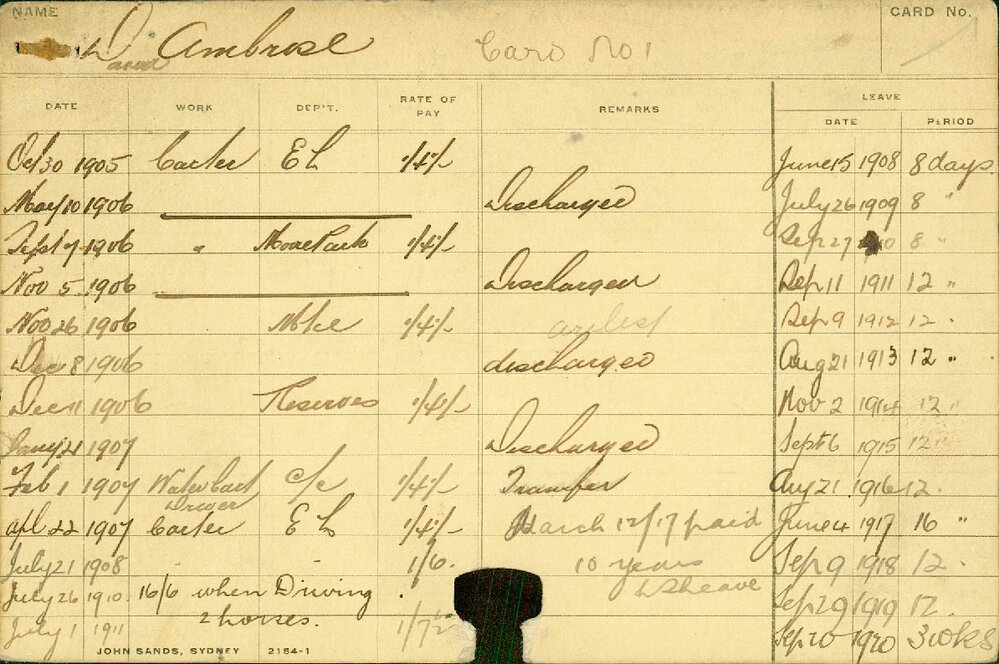 NAME
D. Ambrose
Card No 1
CARD No.
DATE WORK DEP'T. RATE OF PAY REMARKS LEAVE
DATE PERIOD
Oct 30 1905 Carter E L 1/4/- June 15 1908 8 days.
May 10 1906 Discharged July 26 1909 8 "
Sept 7 1906 " Moore Park 1/4/- Sep 27 8 "
Nov 5 1906 Discharged Sep 11 1911 12 "
Nov 26 1906 1/4/- Sep 9 1912 12 "
Dec 8 1906 discharged Aug 21 1913 12 "
Dec 11 1906 Reserves 1/4/- Nov 2 1914 12 "
Jany 21 1907 Discharged Sept 6 1915 12 "
Feb 1 1907 Water Cart Driver C/C 1/4/- Transfer Aug 21 1916 12 "
Apl 22 1907 Carter E L 1/4/- March 12/17 paid June 4 1917 16 "
July 21 1908 1/6. 10 years Sep 9 1918 12.
July 26 1910 16/6 when Driving LSLeave Sep 29 1919 12.
July 1 1911 2 horses. Sep 20 1920 3 wks
JOHN SANDS, SYDNEY 2184-1